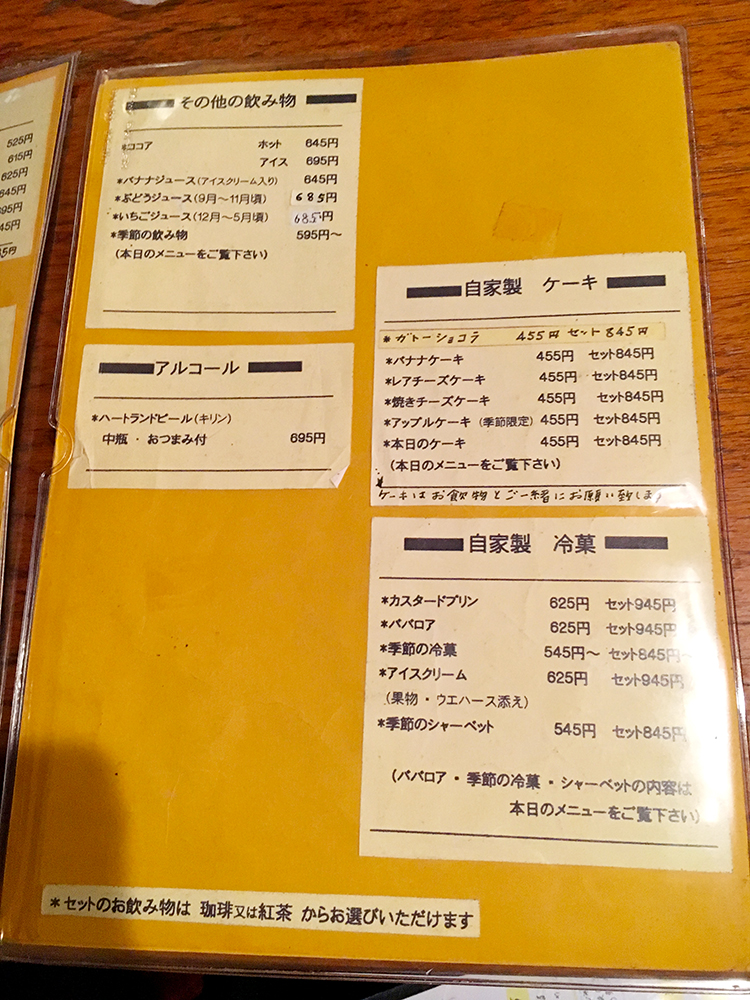 525円
615円
625円
645円
695円
45円
45円
その他の飲み物
*ココア ホット 645円
アイス 695円
*バナナジュース(アイスクリーム入り) 645円
*ぶどうジュース(9月~11月頃) 685円
*いちごジュース(12月~5月頃) 685円
*季節の飲み物 595円~
(本日のメニューをご覧下さい)
アルコール
*ハートランドビール(キリン)
中瓶・おつまみ付 695円
自家製 ケーキ
*ガトーショコラ 455円 セット845円
*バナナケーキ 455円 セット845円
*レアチーズケーキ 455円 セット845円
*焼きチーズケーキ 455円 セット845円
*アップルケーキ(季節限定) 455円 セット845円
*本日のケーキ 455円 セット845円
(本日のメニューをご覧下さい)
*ケーキはお飲物とご一緒にお願い致します
自家製 冷菓
*カスタードプリン 625円 セット945円
*ババロア 625円 セット945円
*季節の冷菓 545円~ セット845円~
*アイスクリーム 625円 セット945円
(果物・ウエハース添え)
*季節のシャーベット 545円 セット845円
(ババロア・季節の冷菓・シャーベットの内容は
本日のメニューをご覧下さい)
*セットのお飲み物は 珈琲又は紅茶 からお選びいただけます